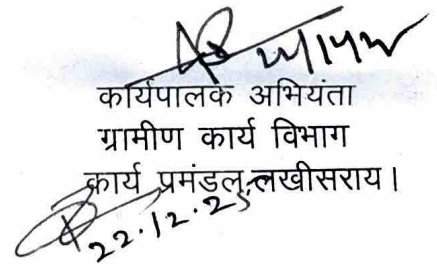 कार्यपालक अभियंता
ग्रामीण कार्य विभाग
कार्य प्रमंडल, लखीसराय।
22.12.25